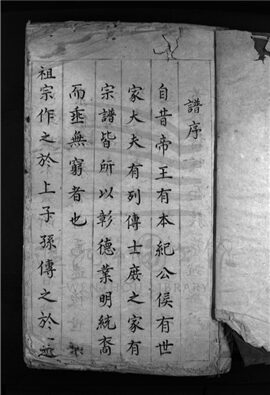 譜序
自昔帝王有本紀公侯有世
家大夫有列傳士庶之家有
宗譜皆所以彰德業明統裔
而垂無窮者也
祖宗作之於上子孫傳之於